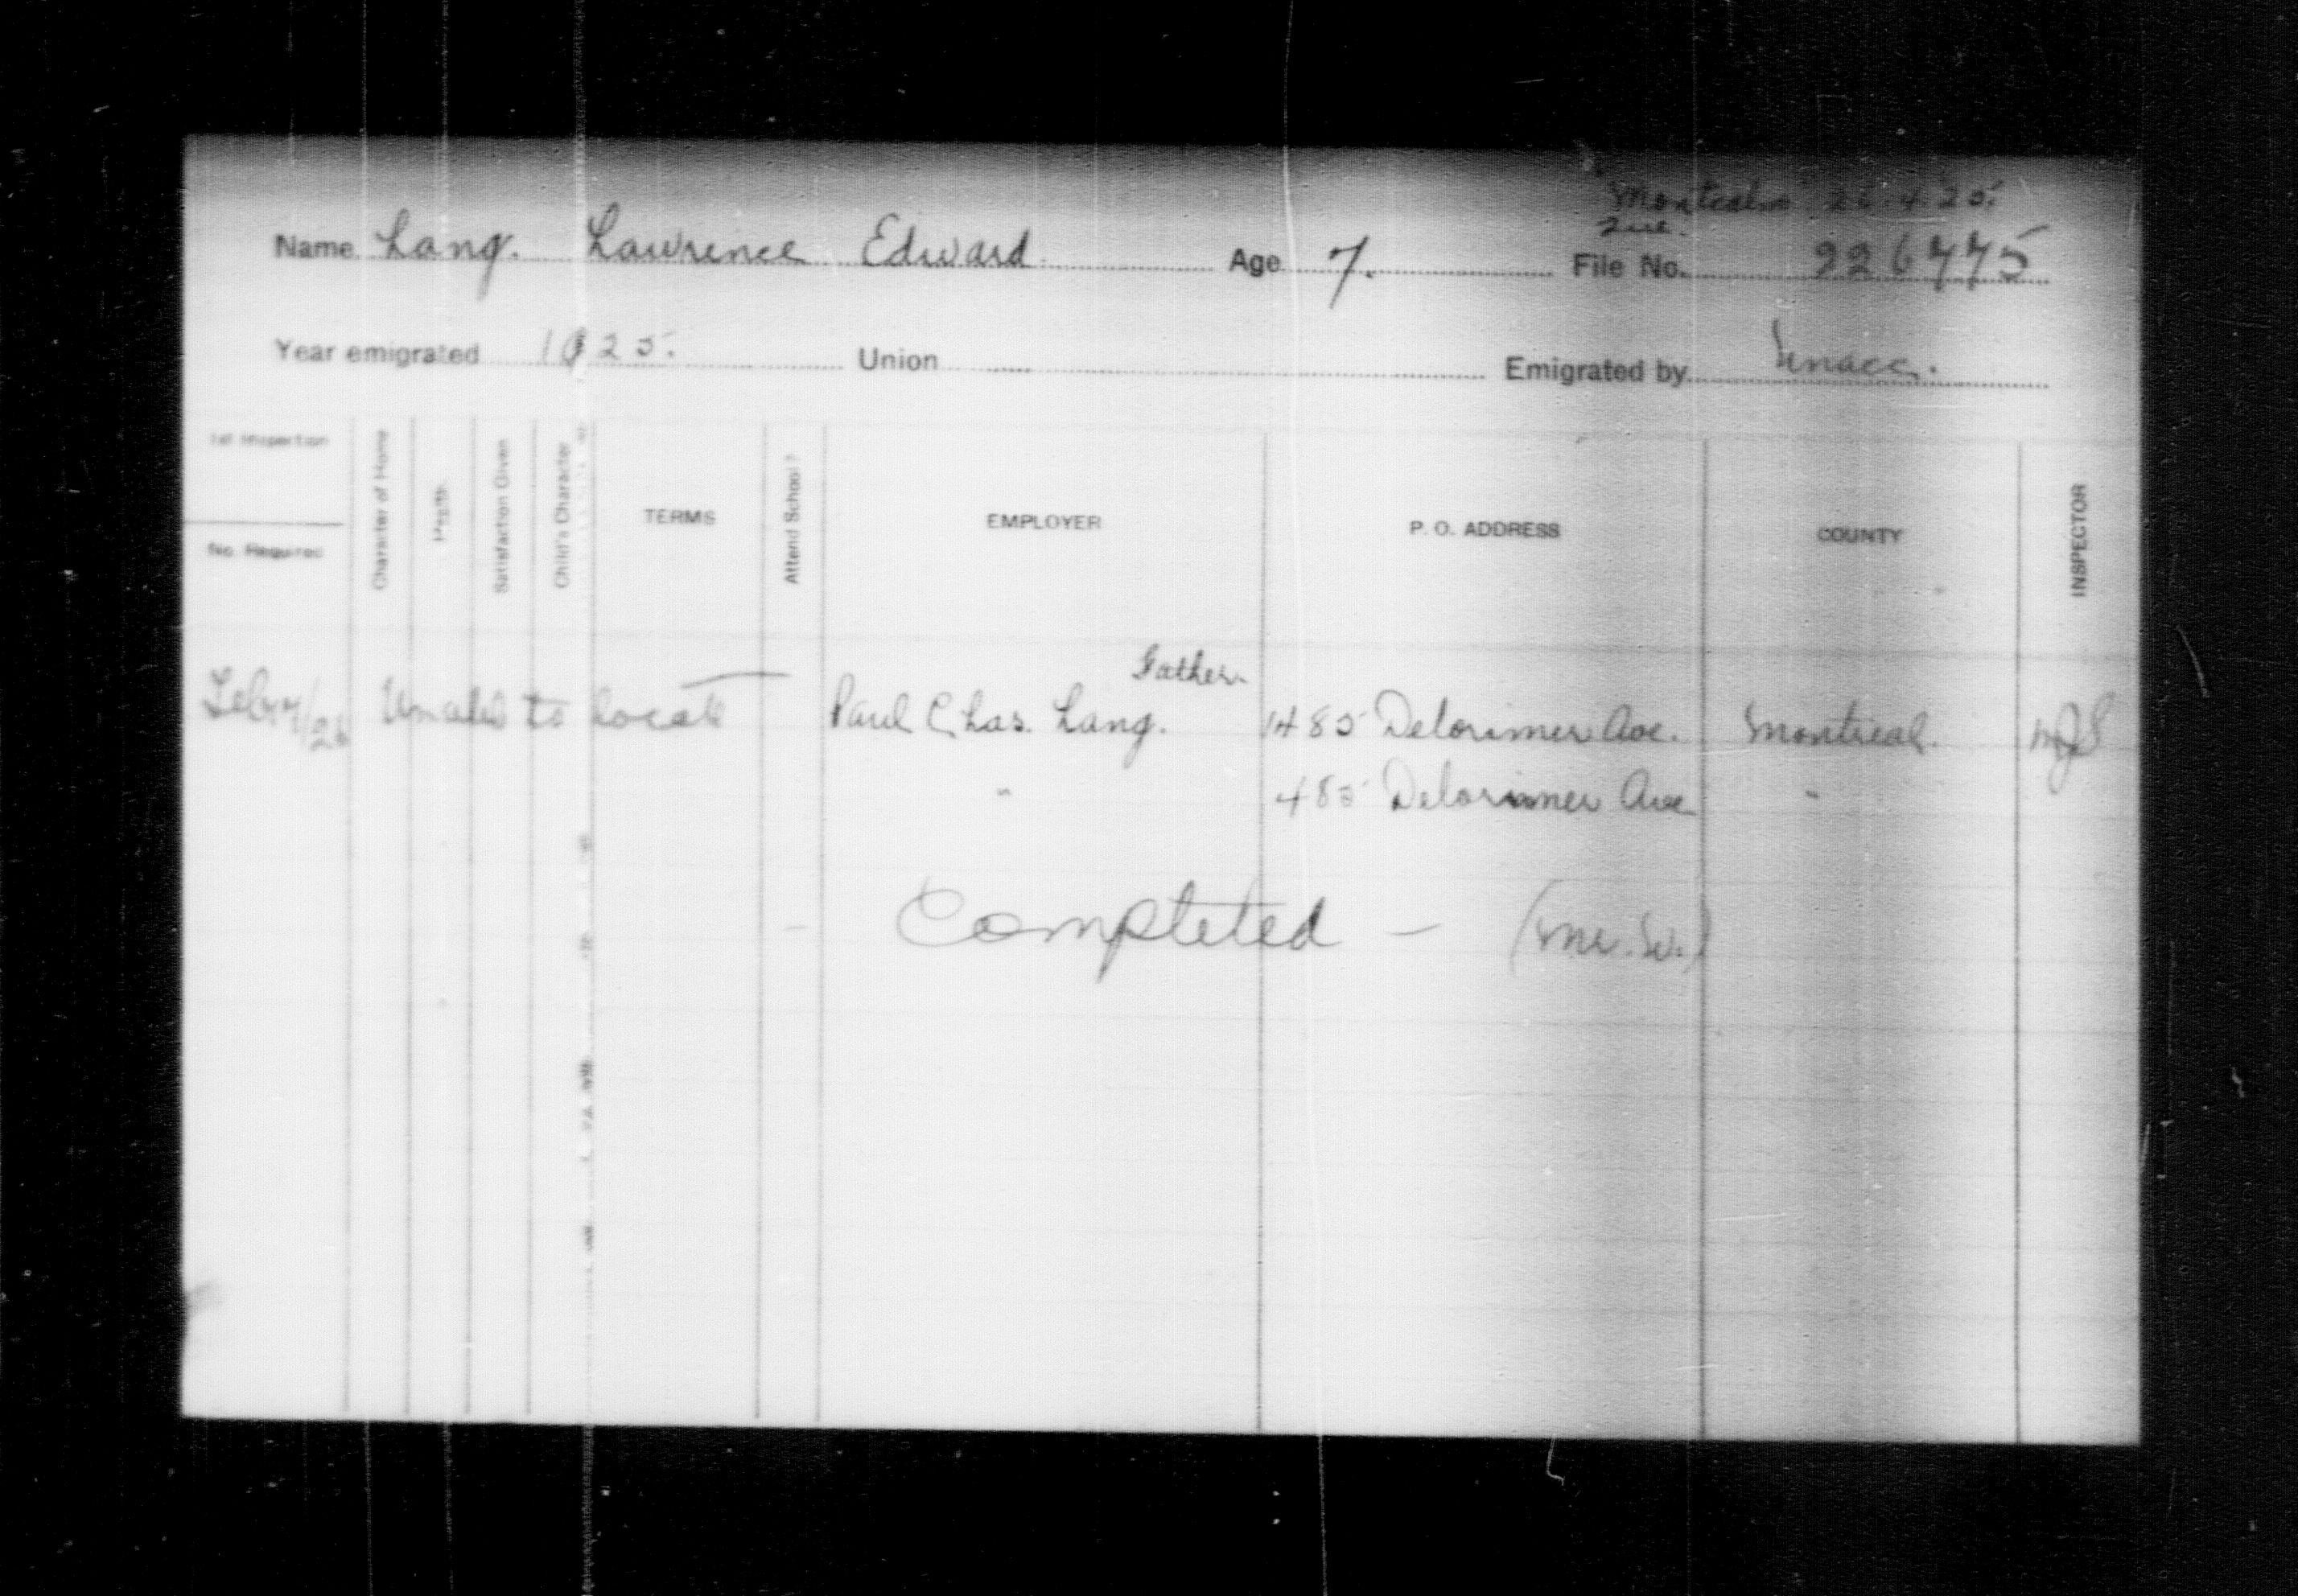 Montcalm 26.4.25.
Que.
Name Lang. Lawrence Edward Age 7. File No. 226775
Year emigrated 1925. Union Emigrated by
1st Inspection
No. Required
Character of Home
Health
Satisfaction Given
Child's Character
TERMS
Attend School?
EMPLOYER
P. O. ADDRESS
COUNTY
INSPECTOR
Father.
Unable to locate Paul Chas. Lang. 1485 Delorimer Ave. Montreal.
" 485 Delorimer Ave "
Completed — (Mr. W.)